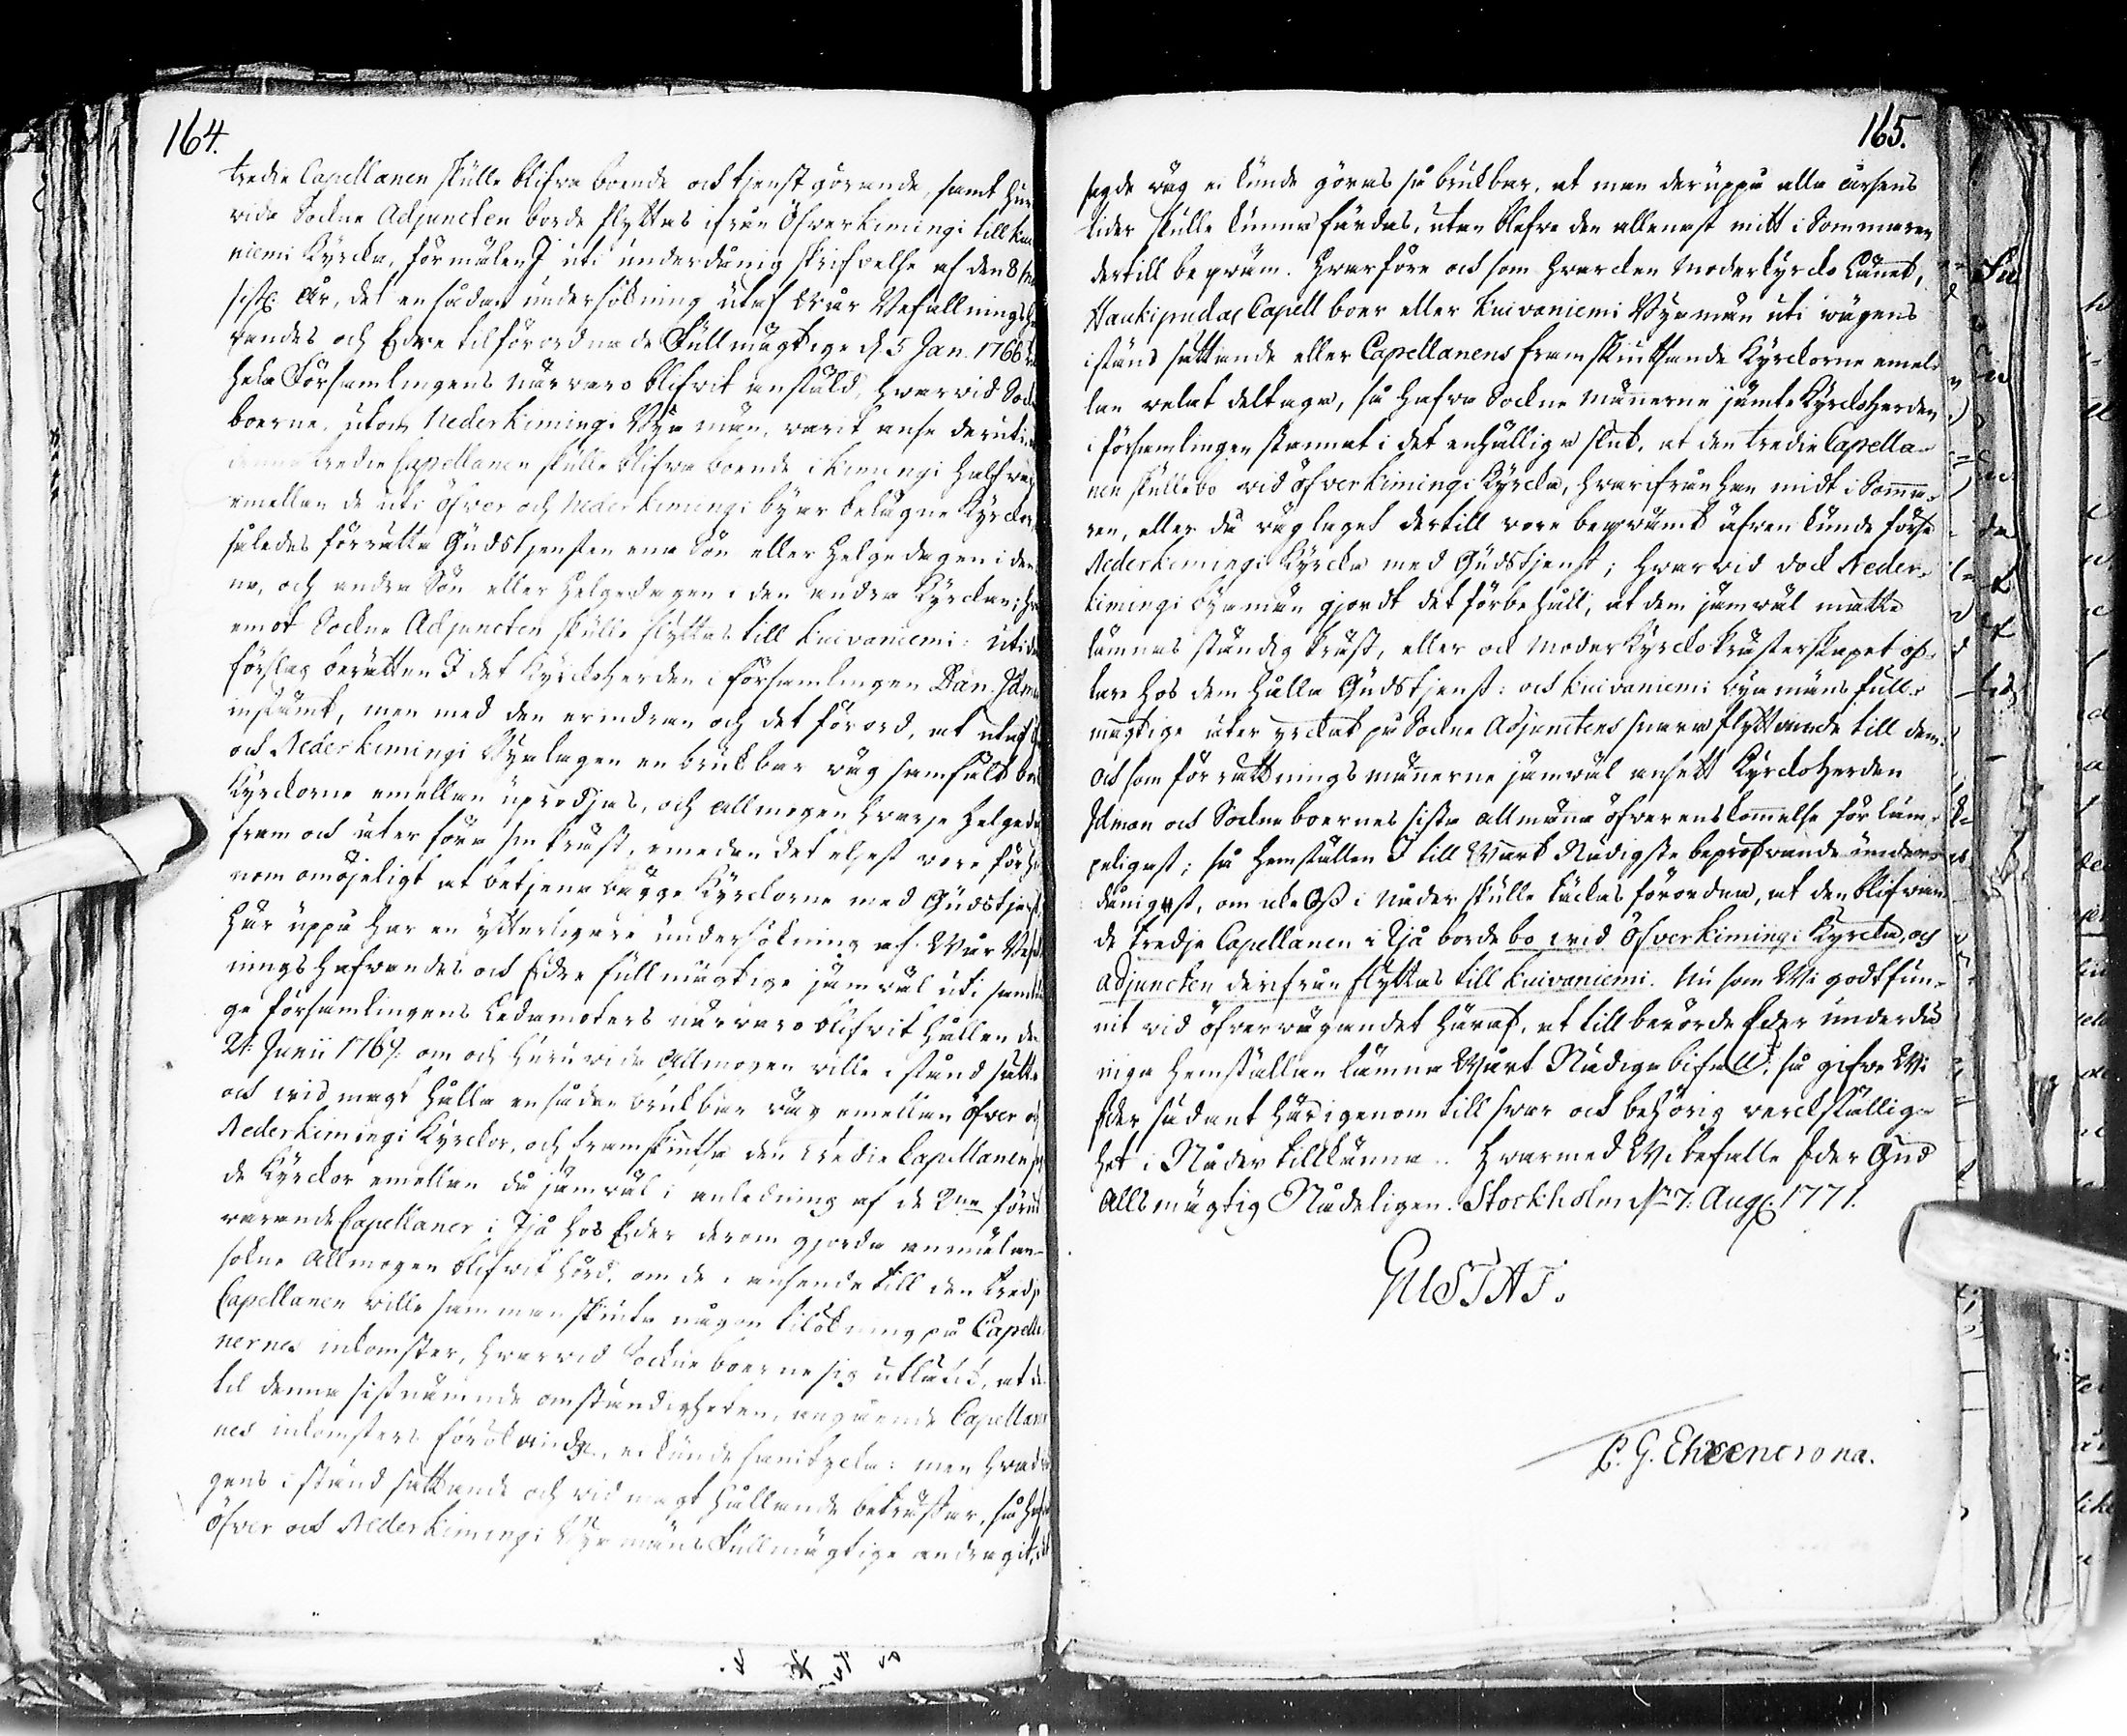 164.
tredie Capellanen skulle blifva boende och tjenstgörande, samt huru
vida Sockne Adjuncten borde flyttas ifrån Öfverkimingi till Kui
niemi Kyrcka, förmälen I uti underdånig skrifvelse af den 8
sistl. År, det en sådan undersökning utaf Vår Befallningsha
vandes och Edre tilförordnade Fullmägtige d. 5 Jan. 1766
hela Församlingens närvaro blifvit anstäld, hvarvid Sock
boerne, utom Nederkimingi Bya män, varit ense derutin
denne tredie Capellanen skulle blifva boende i Kimingi halfveg
emellan de uti Öfver och Nederkimingi byar belägne Kyrckor
således förrätta Gudstjensten ena Sön eller Helgedagen i den
na, och andra Sön eller Helgedagen i den andra Kyrckan; här
emot Sockne Adjuncten skulle flyttas till Kuivaniemi: Uti de
förslag berätten I det Kyrckoherden i församlingen Dan. Idma
instämt, men med den erindran och det förord, at utaf
och Nederkimingi Byalagen en brukbar väg samfält bör
Kyrckorne emellan uprödjas, och allmogen hvarje helgeda
fram och åter föra sin Präst, emedan det eljest vore för ho
nom omöjeligt at betjena bägge Kyrckorne med Gudstjenst
Här uppå har en ytterligare undersökning af Vår Befall
ningshafvandes och Edre fullmägtige jämväl uti samtli
ge församlingens Ledamoters närvaro blifvit hållen den
21. Junii 1769. om och huru vida Allmogen ville i stånd sätta
och vid magt hålla en sådan brukbar väg emellan Öfver och
Nederkimingi Kyrckor, och framskjutsa den tredie Capellanen
de Kyrckor emellan då jämväl i anledning af de 2ne förut
varande Capellaner i Ijå hos Eder derom gjorde anmälan
sokne Allmogen blifvit hörd, om de i anseende till den tredje
Capellanen ville sammanskjuta någon tilökning på Capella
nernes inkomster, hvarvid Sockneboerne sig utlåtit, at de
til denna sistnämnde omständigheten, angående Capella
nes inkomsters förökande, ei kunde samtycka: men hvad
gens i stånd sättande och vid magt hållande beträffar, så haf
Öfver och Nederkimingi Bya mäns Fullmägtige andragit, at
165.
sagde väg ei kunde göras så brukbar, at man deruppå alla årsens
tider skulle kunna färdas, utan blefve den allenast mitt i Sommaren
dertill beqväm. Hvarföre och som hvarcken Moderkyrcko Länet,
Haukipudas Capell boer eller Kuivaniemi Bya män uti vägens
istånd sättande eller Capellanens framskjutsande Kyrckorne emel-
lan velat deltaga, så hafva Sockne männerne jämte Kyrckoherden
i församlingen stannat i det enhällige slut, at den tredie Capella-
nen skulle bo vid Öfverkimingi Kyrcka, hvarifrån han midt i Somma-
ren, eller då väglaget dertill vore beqvämt äfven kunde förse
Nederkimingi Kyrcka med Gudstjenst; hvarvid dock Neder-
kimingi Bya män gjordt det förbehåll, at dem jämväl måtte
lämnas ständig Präst, eller och Moderkyrcko Prästerskapet of-
tare hos dem hålla Gudstjenst: och Kuivaniemi Bya mäns full-
mägtige åter yrckat på Sockne Adjunctens snara flyttande till dem:
Och som förrättnings männerne jämväl ansett Kyrckoherden
Idman och Sockneboernes sista allmäna öfverenskommelse för läm-
peligast; så hemställen I till Vårt Nådigste bepröfvande under-
dånigst, om icke Oss i nåder skulle täckas förordna, at den blifvan-
de tredje Capellanen i Ijå borde bo vid Öfverkimingi Kyrcka, och
Adjuncten derifrån flyttas till Kuivaniemi. Nu som Vi godtfun-
nit vid öfvervägandet häraf, at till berörde Eder underdå
niga hemställan lämna Vårt Nådiga bifall; så gifve Vi
Eder sådant härigenom till svar och behörig verckställig-
het i Nåder tillkänna. Hvarmed Vi befalle Eder Gud
Allsmägtig Nådeligen. Stockholm d. 7. Aug. 1771.
GUSTAF.
C. G. Ehrencrona.